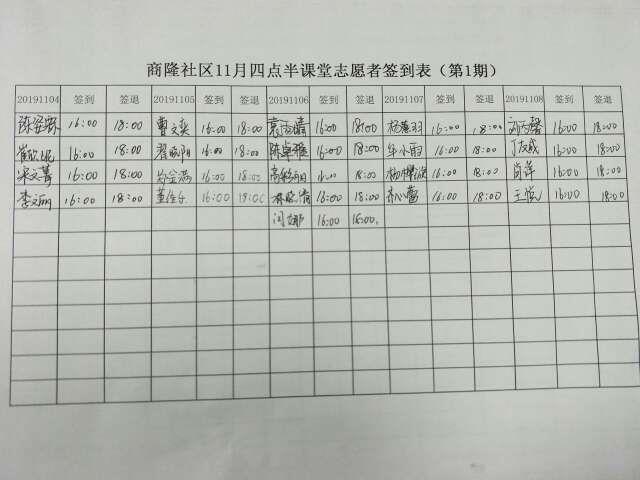 商隆社区11月四点半课堂志愿者签到表（第1期）
20191104 签到 签退 20191105 签到 签退 20191106 签到 签退 20191107 签到 签退 20191108 签到 签退
16:00 18:00 曹文奕 16:00 18:00 16:00 18:00 16:00 18:00 16:00 18:00
16:00 18:00 翟晓阳 16:00 18:00 陈卓雅 16:00 18:00 牟小雨 16:00 18:00 丁友成 16:00 18:00
宋文菁 16:00 18:00 16:00 18:00 16:00 18:00 16:00 18:00 肖萍 16:00 18:00
李文丽 16:00 18:00 16:00 林晓倩 16:00 18:00 16:00 18:00 王悦 16:00 18:00
闫娜 16:00